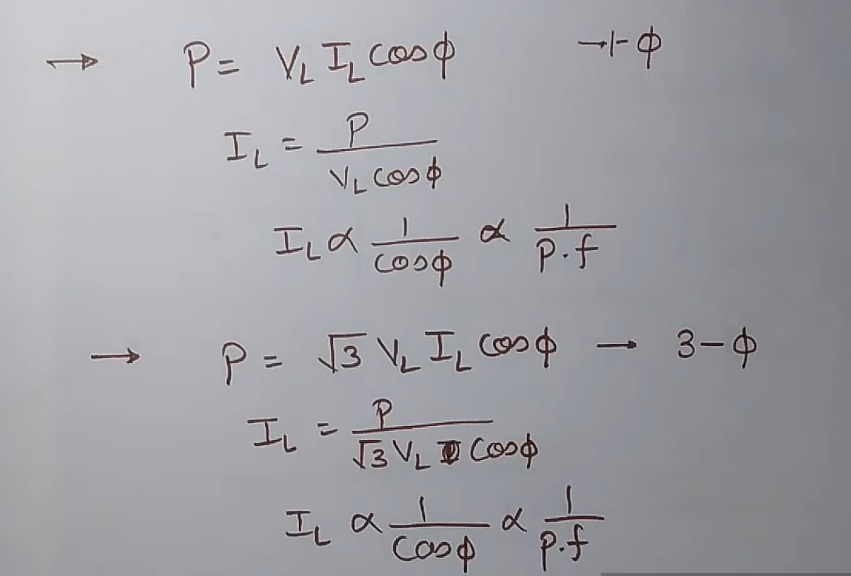 → P = V_L I_L cosφ → 1-φ
I_L = P / V_L cosφ
I_L ∝ 1 / cosφ ∝ 1 / p.f
→ P = √3 V_L I_L cosφ → 3-φ
I_L = P / √3 V_L cosφ
I_L ∝ 1 / cosφ ∝ 1 / p.f